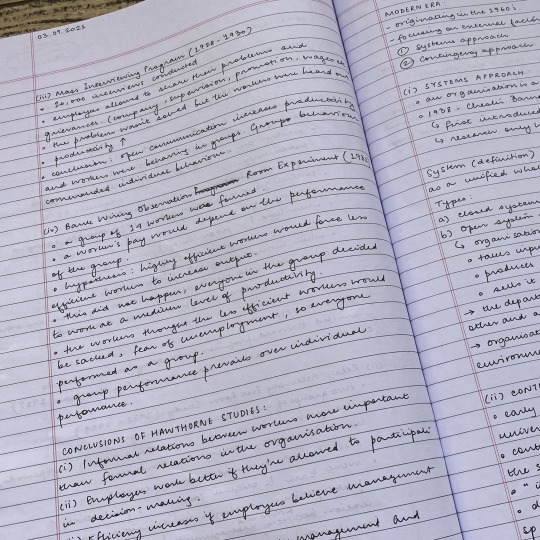 03.09.2021
(iii) Mass Interviewing Program (1928-1930)
• 20,000 interviews conducted
• employees allowed to share their problems and
grievances (company, supervision, promotion, wages
• the problems wasn't solved but the workers were heard out
• productivity ↑
• conclusion: open communication increases productivity
and workers were behaving in groups. Groups behaviour
commanded individual behaviour.
(iv) Bank Wiring Observation Room Experiment (193
• a group of 14 workers was formed.
• a worker's pay would depend on the performance
of the group.
• hypothesis: highly efficient workers would force less
efficient workers to increase output.
• this did not happen, everyone in the group decided
to work at a medium level of productivity.
• the workers thought the less efficient workers would
be sacked, fear of unemployment, so everyone
performed as a group.
• group performance prevails over individual
perfomance.
CONCLUSIONS OF HAWTHORNE STUDIES:
(i) Informal relations between workers more important
than formal relations in the organisation.
(ii) Employees work better if they're allowed to participa
in decision-making.
Efficiency increases if employees believe management
management and
MODERN ERA:
- originating in the 1960s
- focusing on external
① Systems approach
② Contingency approach
(i) SYSTEMS APPROACH:
• an organisation is a
• 1938 -
↳ first introduced
↳ research only
System (definition)
as a unified whole
Types:
a) closed system
b) Open system
↳ organisation
• takes inpu
• produces
• sells it
→ the depart
other and a
→ organisat
environme
(ii) CONT
• early
univer
• cent
the s